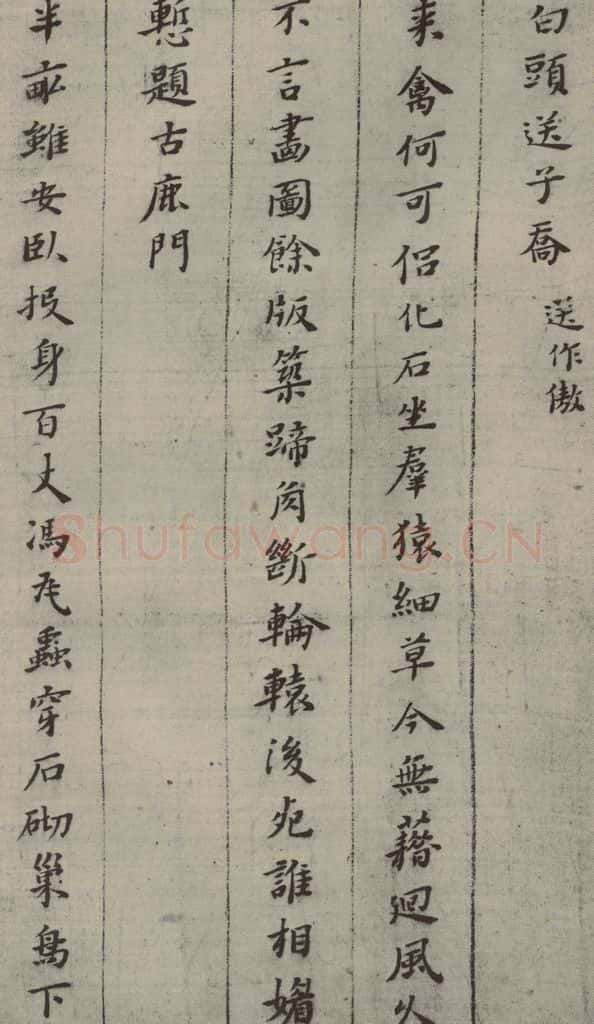 白頭送子喬 送作傲
来禽何可侶化石坐羣猿細草今無藉迴風久
不言畫圖餘版築蹄肉斷輪轅後死誰相媚
慙題古鹿門
半畝雖安臥投身百丈馮危蟲穿石砌巢鳥下
Shufawang.CN